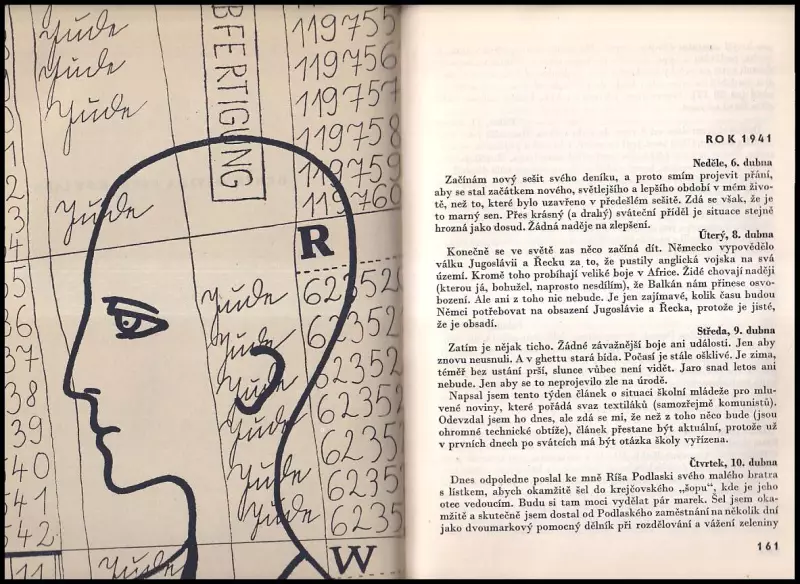 Jude 119755
Jude 119756
Jude 119757
119758
119759
Jude 119760
BFERTIGUNG
R
Jude 623520
Jude 62352
Jude 62352
Jude 62352
Jude 6235
Jude 6235
Jude 6235
W
Jude
2
3
4
35
36
37
38
39
40
54
542
11
ROK 1941
Neděle, 6. dubna
Začínám nový sešit svého deníku, a proto smím projevit přání,
aby se stal začátkem nového, světlejšího a lepšího období v mém živo-
tě, než to, které bylo uzavřeno v předešlém sešitě. Zdá se však, že je
to marný sen. Přes krásný (a drahý) sváteční příděl je situace stejně
hrozná jako dosud. Žádná naděje na zlepšení.
Úterý, 8. dubna
Konečně se ve světě zas něco začíná dít. Německo vypovědělo
válku Jugoslávii a Řecku za to, že pustily anglická vojska na svá
území. Kromě toho probíhají veliké boje v Africe. Židé chovají naději
(kterou já, bohužel, naprosto nesdílím), že Balkán nám přinese osvo-
bození. Ale ani z toho nic nebude. Je jen zajímavé, kolik času budou
Němci potřebovat na obsazení Jugoslávie a Řecka, protože je jisté,
že je obsadí.
Středa, 9. dubna
Zatím je nějak ticho. Žádné závažnější boje ani události. Jen aby
znovu neusnuli. A v ghettu stará bída. Počasí je stále ošklivé. Je zima,
téměř bez ustání prší, slunce vůbec není vidět. Jaro snad letos ani
nebude. Jen aby se to neprojevilo zle na úrodě.
Napsal jsem tento týden článek o situaci školní mládeže pro mlu-
vené noviny, které pořádá svaz textiláků (samozřejmě komunistů).
Odevzdal jsem ho dnes, ale zdá se mi, že než z toho něco bude (jsou
ohromné technické obtíže), článek přestane být aktuální, protože už
v prvních dnech po svátcích má být otázka školy vyřízena.
Čtvrtek, 10. dubna
Dnes odpoledne poslal ke mně Ríša Podlaski svého malého bratra
s lístkem, abych okamžitě šel do krejčovského „šopu“, kde je jeho
otec vedoucím. Budu si tam moci vydělat pár marek. Šel jsem oka-
mžitě a skutečně jsem dostal od Podlaského zaměstnání na několik dní
jako dvoumarkový pomocný dělník při rozdělování a vážení zeleniny
161